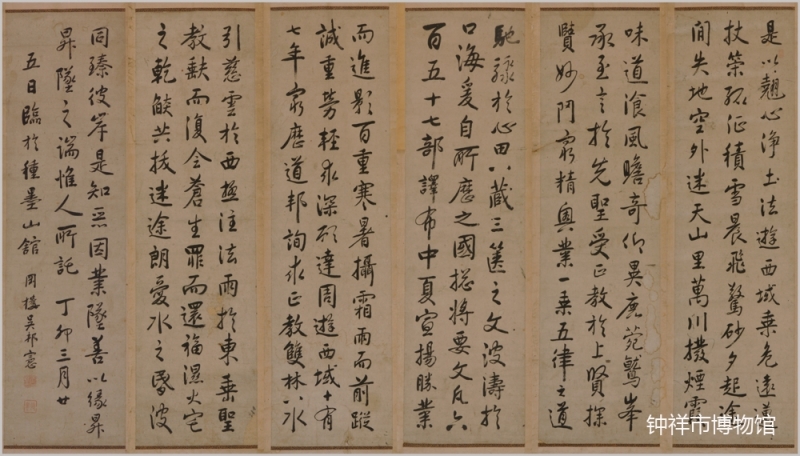 是以翹心淨土法遊西域乘危遠邁
杖策孤征積雪晨飛驚砂夕起途
間失地空外迷天山里萬川撥煙霞
味道湌風瞻奇仰異鹿菀鷲峯
承至言於先聖受正教於上賢探
賾妙門窮精奧業一乘五律之道
馳驟於心田八藏三篋之文波濤於
口海爰自所歷之國總將要文凡六
百五十七部譯布中夏宣揚勝業
而進影百重寒暑攝霜雨而前蹤
誠重勞輕求深願達周遊西域十有
七年窮歷道邦詢求正教雙林八水
引慈雲於西極注法雨於東垂聖
教缺而復全蒼生罪而還福濕火宅
之乾燄共拔迷途朗愛水之昏波
同臻彼岸是知惡因業墜善以緣昇
昇墜之端惟人所託 丁卯三月廿
五日臨於種墨山館 吴邦憲
钟祥市博物馆